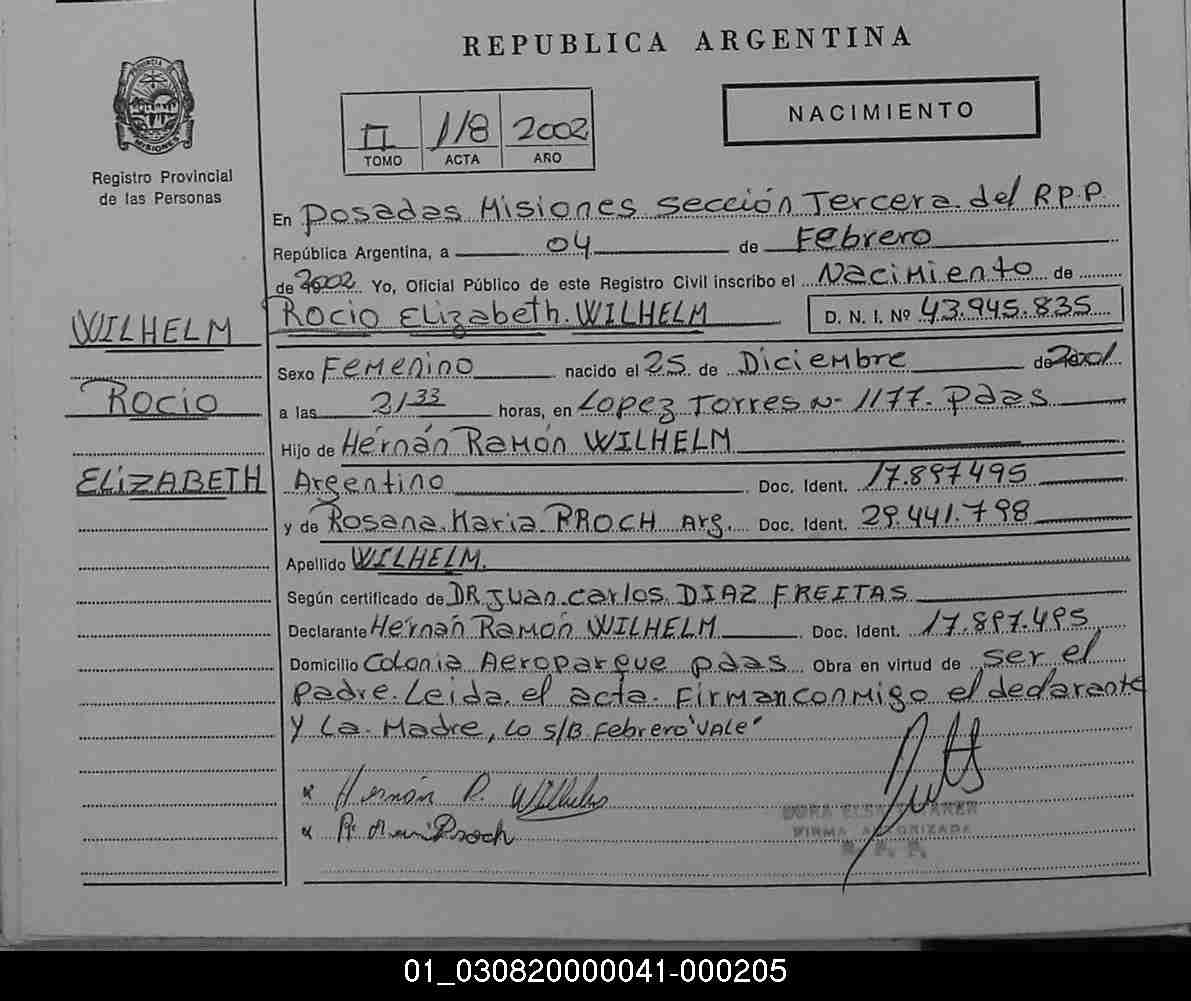 REPUBLICA ARGENTINA
PROVINCIA DE MISIONES
Registro Provincial
de las Personas
II 118 2002
TOMO ACTA AÑO
NACIMIENTO
En Posadas Misiones sección Tercera del R.P.P.
República Argentina, a 04 de Febrero
de 2002 Yo, Oficial Público de este Registro Civil inscribo el Nacimiento de
Rocio Elizabeth. WILHELM D. N. I. Nº 43.945.835
WILHELM
Rocio
ELIZABETH
Sexo Femenino nacido el 25 de Diciembre de 2001
a las 21 33 horas, en Lopez Torres N- 1177- pdas
Hijo de Hernán Ramón WILHELM
Argentino Doc. Ident. 17.897495
y de Rosana Maria PROCH Arg. Doc. Ident. 29.441.798
Apellido WILHELM.
Según certificado de DR Juan Carlos DIAZ FREITAS
Declarante Hernán Ramón WILHELM Doc. Ident. 17.897.495
Domicilio Colonia Aeroparque pdas Obra en virtud de ser el
padre. Leida el acta. Firman conmigo el declarante
y La Madre, Lo S/B Febrero "VALE"
x Hernán R. Wilhelm
x Proch
DORA ELSA
FIRMA AUTORIZADA
R. P. P.
01_030820000041-000205